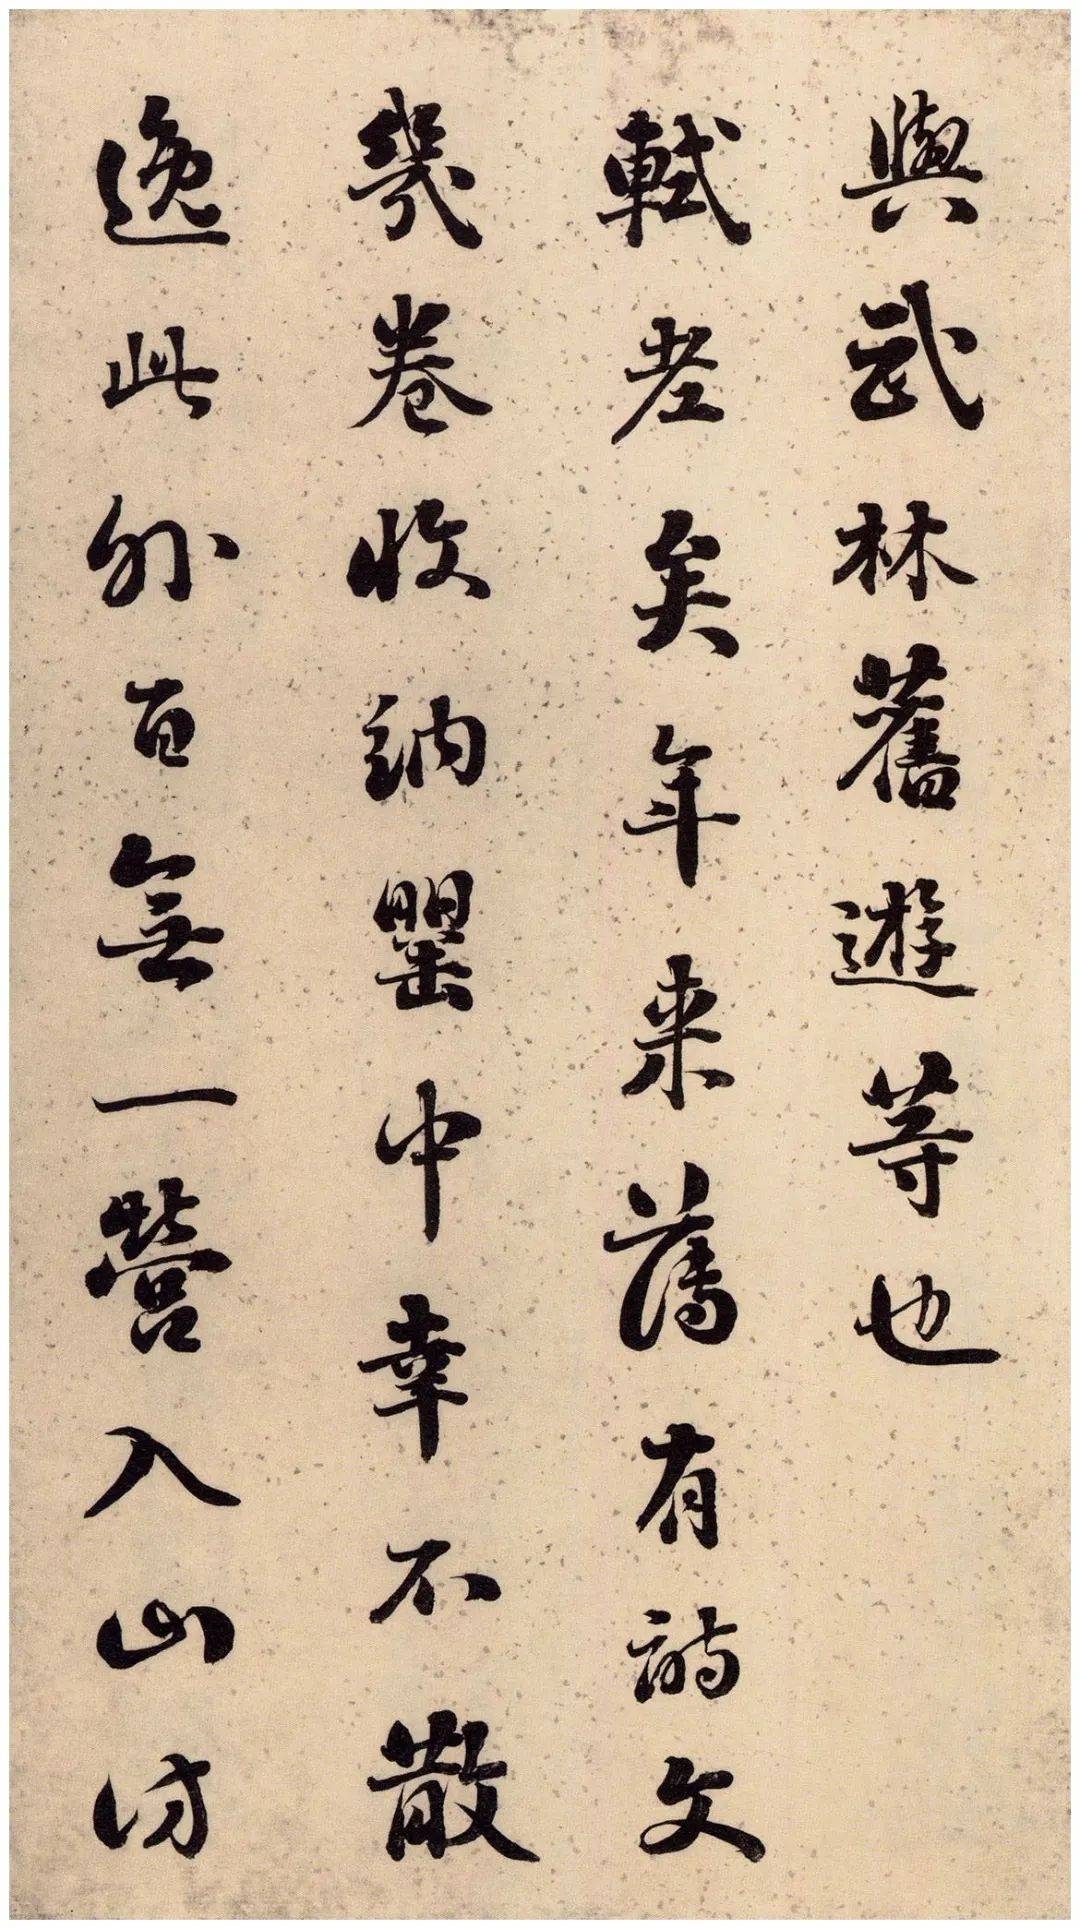 與武林舊遊等也
軾老矣年来薄有詩文
幾卷收納罌中幸不散
逸此外百無一營入山訪